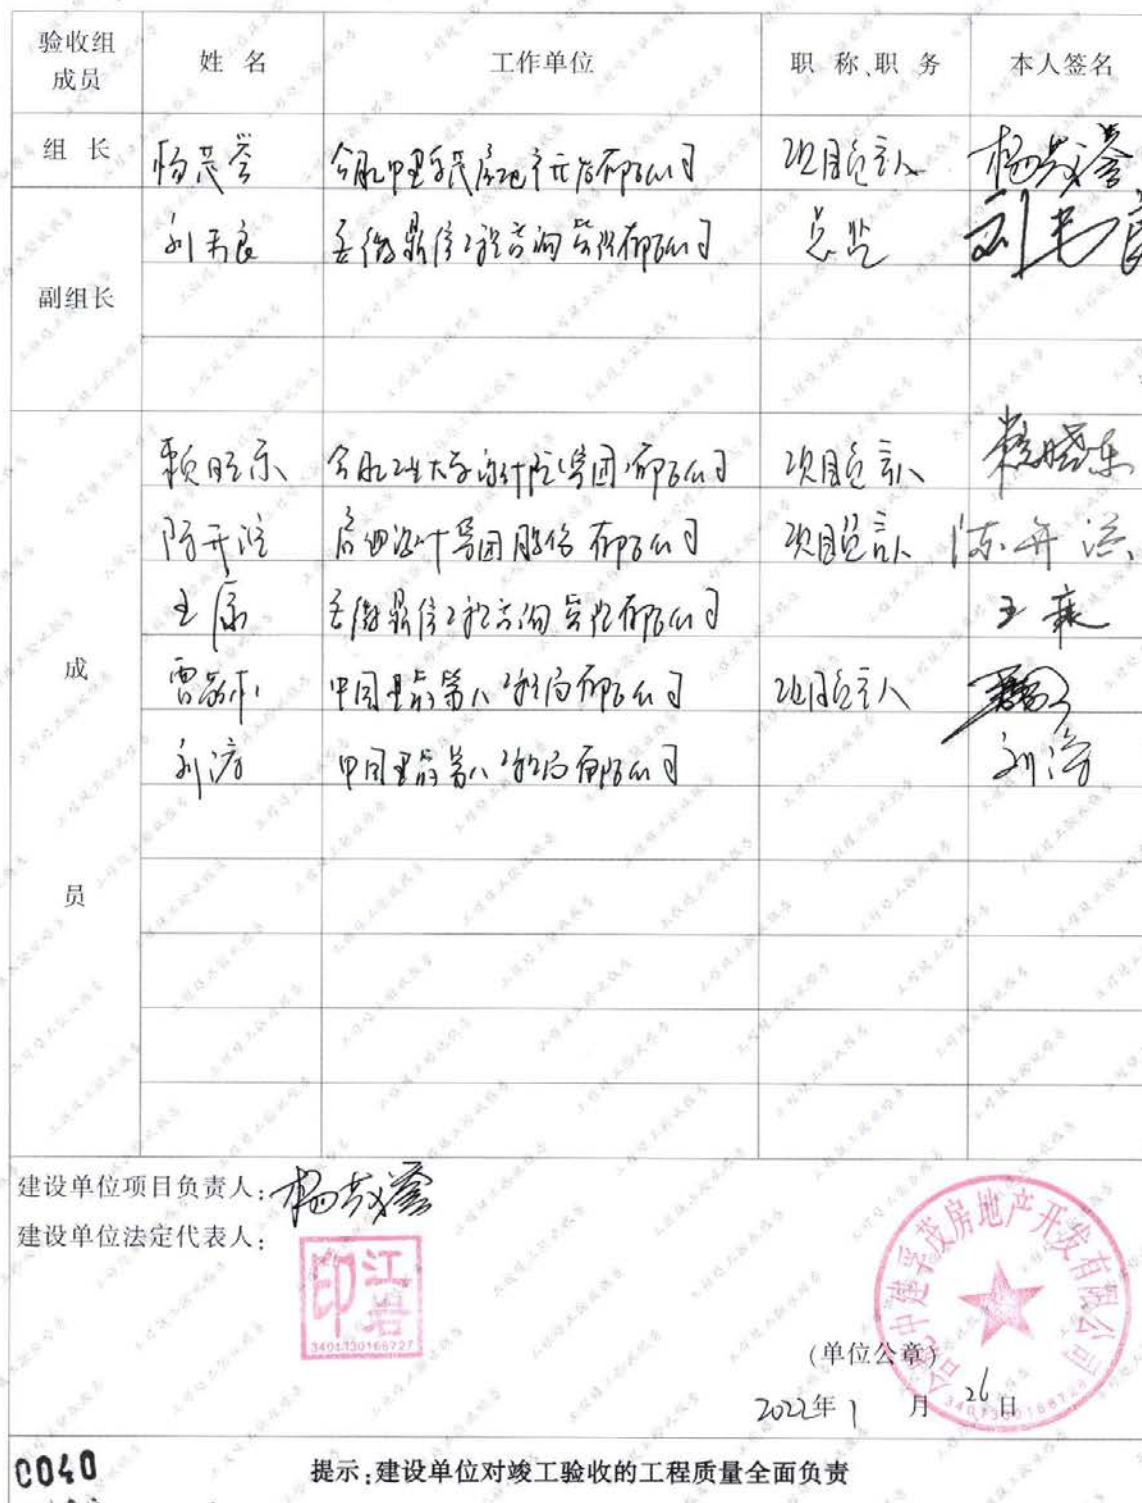 验收组成员 姓 名 工作单位 职 称、职 务 本人签名
组 长 杨茂 合肥中建孚茂房地产开发有限公司 项目负责人 杨茂
副组长
刘 良 安徽鼎信工程咨询 有限公司 总监 刘 良
成员
赖晓东 合肥工业大学设计院(集团)有限公司 项目负责人 赖晓东
陈开 启迪设计集团股份有限公司 项目负责人 陈开
王康 安徽鼎信工程咨询 有限公司 王康
曹 中国建筑第八工程局有限公司 项目负责人
刘涛 中国建筑第八工程局有限公司 刘涛
建设单位项目负责人: 杨茂
建设单位法定代表人:
江岩印
3401130166727
合肥中建孚茂房地产开发有限公司
(单位公章)
2022年1月26日
0040
提示:建设单位对竣工验收的工程质量全面负责